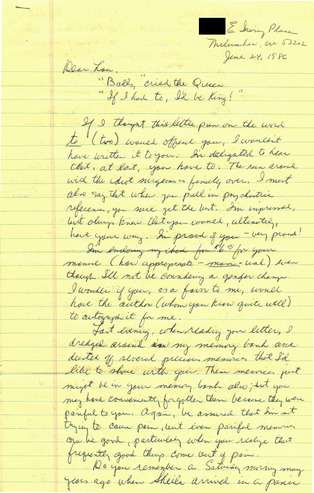 E Irving Place
Milwaukee, WI 53202
June 24, 1986
Dear Lou,
"Balls," cried the Queen
"If I had to, I'd be King!"
If I thought this little pun on the word
to (two) would offend you, I wouldn't
have written it to you. I'm delighted to hear
that, at last, you have to. The run around
with the idiot surgeon is finally over. I must
also say that when you pull in psychiatric
reference, you sure get the best. I'm impressed,
but always knew that you would, ultimately,
have your way. I'm proud of you - very proud!
I'm enclosing my check for for your
manual (how appropriate - man-ual) even
though I'll not be considering a gender change.
I wonder if you, as a favor to me, would
have the author (whom you know quite well)
to autograph it for me.
Last evening, when reading your letter, I
dredged around in my memory bank and
dusted off several precious memories that I'd
like to share with you. These memories just
might be in your memory bank also, but you
may have conveniently forgotten them because they were
painful to you. Again, be assured that I'm not
trying to cause pain, but even painful memories
can be good, particularly when you realize that
frequently good things come out of pain.
Do you remember a Saturday morning many
years ago when Sheila arrived in a panic